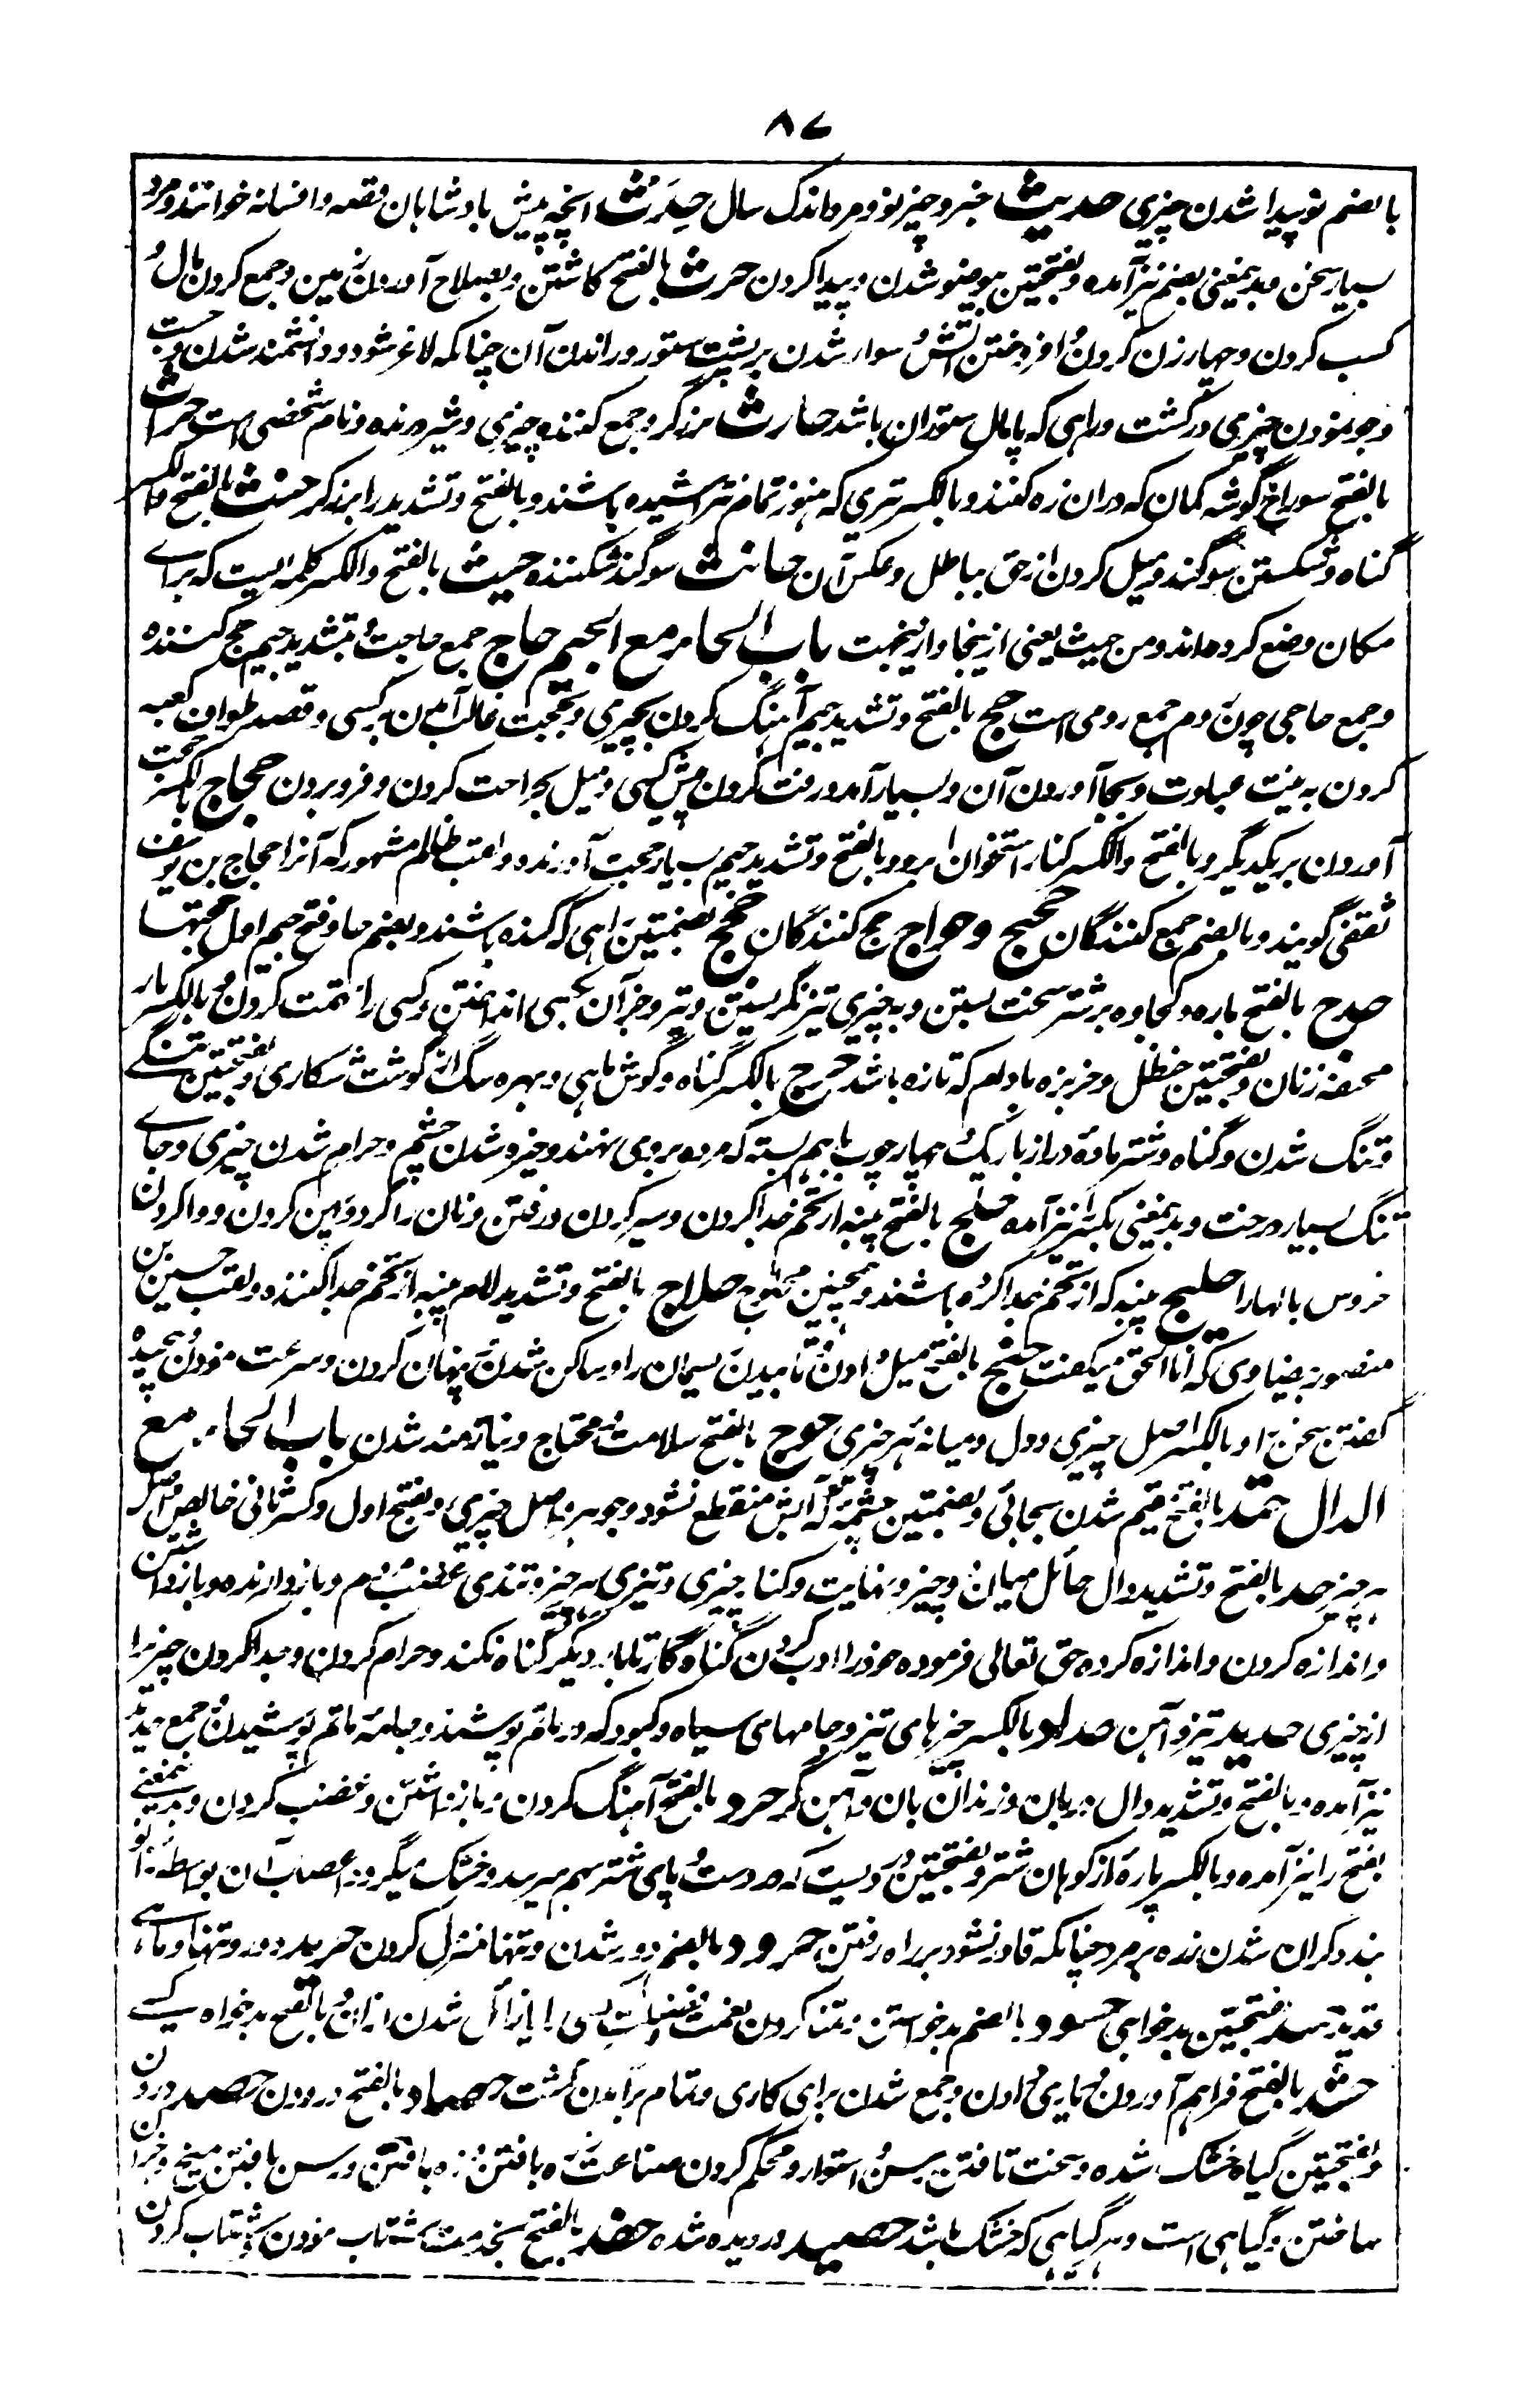 ۸۷
بالضم نو پیدا شدن چیزی حدیث خبر و چیز نو و مرد اندک سال حدث انچه پیش بادشاهان قصه و افسانه خوانند و مرد
بسیار سخن و بدینمعنی بضم نیز آمده و بفتحتین بیوضو شدن و پیدا کردن حرث بالفتح کاشتن و بصلاح آوردن زمین و جمع کردن مال و
کسب کردن و چهار زن کردن و افروختن آتش و سوار شدن بر پشت ستور و راندن آن چنانکه لاغر شود و دانشمند شدن و جست
وجو نمودن چیزی و کشت و راهی که پامال ستوران باشد حارث برزگر و جمع کننده چیزی و شیر درنده و نام شخصی است حراث
بالفتح سوراخ گوشه کمان که دران زه کنند و بالکسر تیری که هنوز تمام نتراشیده باشند و بالفتح و تشدید را برزگر حنث بالفتح والکسر
گناه و شکستن سوگند و میل کردن از حق بباطل و عکس آن حانث سوگند شکننده حیث بالفتح والکسر کلمه ایست که برای
مکان وضع کرده اند و من حیث یعنی از ینجا و ازینجهت باب الحاء مع الجیم حاج جمع حاجت و بتشدید جیم حج کننده
و جمع حاجی چون روم جمع رومی است حج بالفتح و تشدید جیم آهنگ کردن بچیزی و بحجت غالب آمدن بر کسی و قصد طواف کعبه
کردن به نیت عبادت و بجا آوردن آن و بسیار آمد و رفت کردن پیش کسی و میل بجراحت کردن و فرو بردن حجاج بالکسر حجت
آوردن بر یکدیگر و بالفتح والکسر کنار استخوان ابرو و بالفتح و تشدید جیم بسیار حجت آورنده و لقب ظالم مشهور که آنرا حجاج بن یوسف
ثقفی گویند و بالضم جمع کنندگان حجیج و حواج حج کنندگان حجج بضمتین راهی که کنده باشند و بضم حا و فتح جیم اول حجتها
حدج بالفتح باره و کجاوه بر شتر سخت بستن و به چیزی تیز نگریستن و تیر و جز آن بکسی انداختن و کسی را تهمت کردن و بالکسر بار و
محفه زنان و بفتحتین حنظل و خربزه بادام که تازه باشد حرج بالکسر گناه و گوش ماهی و بهره سگ از گوشت شکاری و بفتحتین تنگی
و تنگ شدن و گناه و شتر ماده دراز باریک و چهار چوب باهم بسته که مرده بروی نهند و خیره شدن چشم و حرام شدن چیزی و جای
تنگ بسیار درخت و بدینمعنی بکسر را نیز آمده حلج بالفتح پنبه از تخم جدا کردن و سیر کردن و رفتن و نان را گرد و پهن کردن و وا کردن
خروس بالها را حلیج پنبه که از تخم جدا کرده باشند و همچنین محلوج حلاج بالفتح و تشدید لام پنبه از تخم جدا کننده و لقب حسین بن
منصور بیضاوی که انا الحق میگفت حنج بالفتح میل دادن و تابیدن ریسمان را و ساکن شدن و پنهان کردن و سرعت نمودن و پیچیده
گفتن سخن را و بالکسر اصل چیزی و دل و میانه هر چیزی حوج بالفتح سلامت و محتاج و نیازمند شدن باب الحاء مع
الدال حتد بالفتح مقیم شدن بجائی و بضمتین چشمه که آبش منقطع نشود و جوهر و اصل چیزی و بفتح اول و کسر ثانی خالص و اصل
هر چیز حد بالفتح و تشدید دال حائل میان دو چیز و نهایت و کنار چیزی و تیزی هر چیز و تندی غضب و باز دارنده و باز داشتن
و اندازه کردن و اندازه کرده حق تعالی فرموده خود را ادب کردن گناه گار تا بار دیگر گناه نکند و حرام کردن و جدا کردن چیز را
از چیزی حدید تیز و آهن حداد بالکسر چیزهای تیز و جامهای سیاه و کبود که در ماتم پوشند و جامه ماتم پوشیدن و جمع حدید
نیز آمده و بالفتح و تشدید دال دربان و زندان بان و آهن گر حرد بالفتح آهنگ کردن و باز داشتن و غضب کردن و بدینمعنی
بفتح را نیز آمده و بالکسر پاره از کوهان شتر و بفتحتین دردیست که در دست و پای شتر بهم میرسد و خشک میگردد اعصاب آن بواسطه زانو
بند و گران شدن زره بر مرد چنانکه قادر نشود بر راه رفتن حرود بالضم دور شدن و تنها منزل کردن حرید دور و تنها و ماهی
قدید حسد بفتحتین بدخواهی حسود بالضم بدخواستن و تمنا کردن نعمت و فضیلت کسی را یا زائل شدن ازان و بالفتح بدخواه کسی
حشد بالفتح فراهم آوردن و یاری دادن و جمع شدن برای کاری و تمام برآمدن کشت حصاد بالفتح درودن حصد درودن
و بفتحتین گیاه خشک شده و سخت تافتن رسن و استوار و محکم کردن صناعت زه بافتن و زه بافتن و رسن بافتن میخ و جز آن
ساختن و گیاهی است و هر گیاهی که خشک باشد حصید درویده شده حفد بالفتح بخدمت شتاب نمودن و شتاب کردن